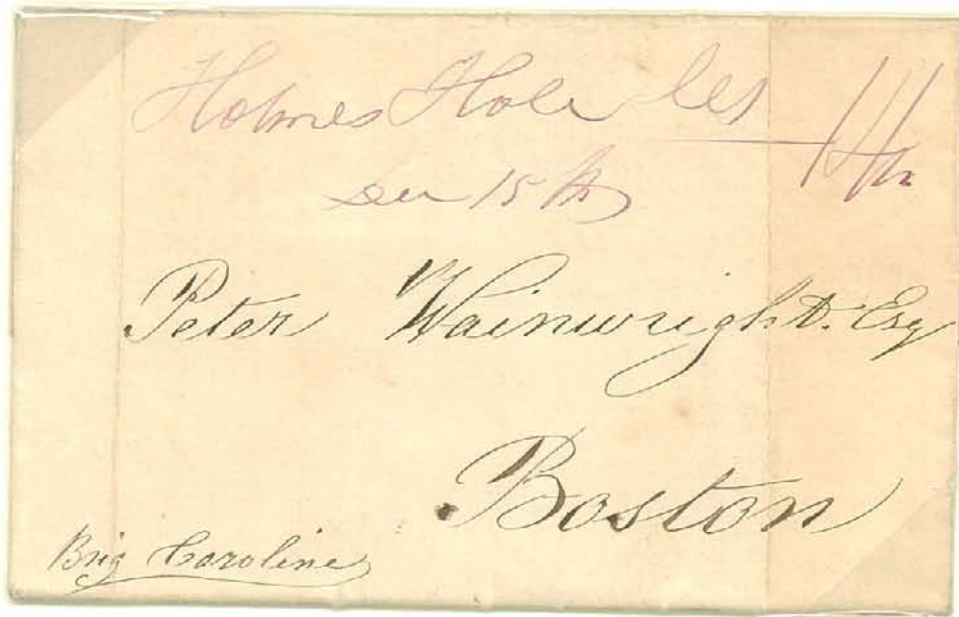 Holmes Hole
15th
Peter Wainwright. Esq
Boston
Brig Caroline